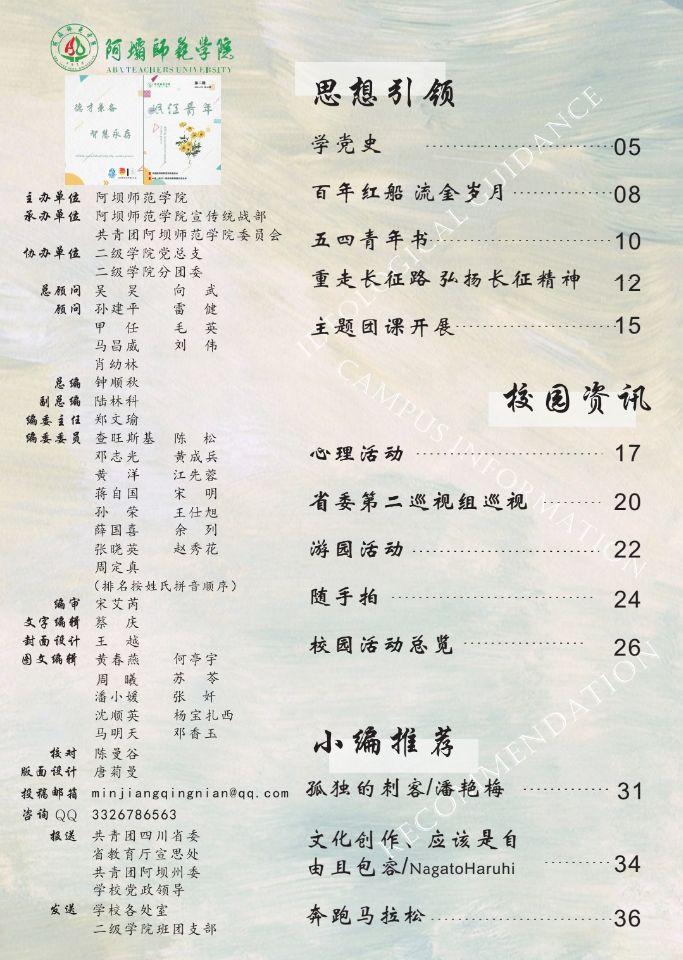 阿壩師範学院
ABA TEACHERS UNIVERSITY
德才兼备
智慧永存
第二期
岷江青年
主办单位 阿坝师范学院
承办单位 阿坝师范学院宣传统战部
共青团阿坝师范学院委员会
协办单位 二级学院党总支
二级学院分团委
总顾问 吴 昊 向 武
顾问 孙建平 雷 健
甲 任 毛 英
马昌威 刘 伟
肖幼林
总编 钟顺秋
副总编 陆林科
编委主任 郑文瑜
编委委员 查旺斯基 陈 松
邓志光 黄成兵
黄 洋 江先蓉
蒋自国 宋 明
孙 荣 王仕旭
薛国喜 余 列
张晓英 赵秀花
周定真
（排名按姓氏拼音顺序）
编审 宋艾芮
文字编辑 蔡 庆
封面设计 王 越
图文编辑 黄春燕 何亭宇
周 曦 苏 苓
潘小媛 张 奸
沈顺英 杨宝扎西
马明天 邓香玉
校对 陈曼谷
版面设计 唐菊曼
投稿邮箱 minjiangqingnian@qq.com
咨询QQ 3326786563
报送 共青团四川省委
省教育厅宣思处
共青团阿坝州委
学校党政领导
发送 学校各处室
二级学院班团支部
思想引领
IDEOLOGICAL GUIDANCE
学党史 05
百年红船 流金岁月 08
五四青年书 10
重走长征路 弘扬长征精神 12
主题团课开展 15
校园资讯
CAMPUS INFORMATION
心理活动 17
省委第二巡视组巡视 20
游园活动 22
随手拍 24
校园活动总览 26
小编推荐
RECOMMENDATION
孤独的刺客/潘艳梅 31
文化创作、应该是自
由且包容/NagatoHaruhi 34
奔跑马拉松 36